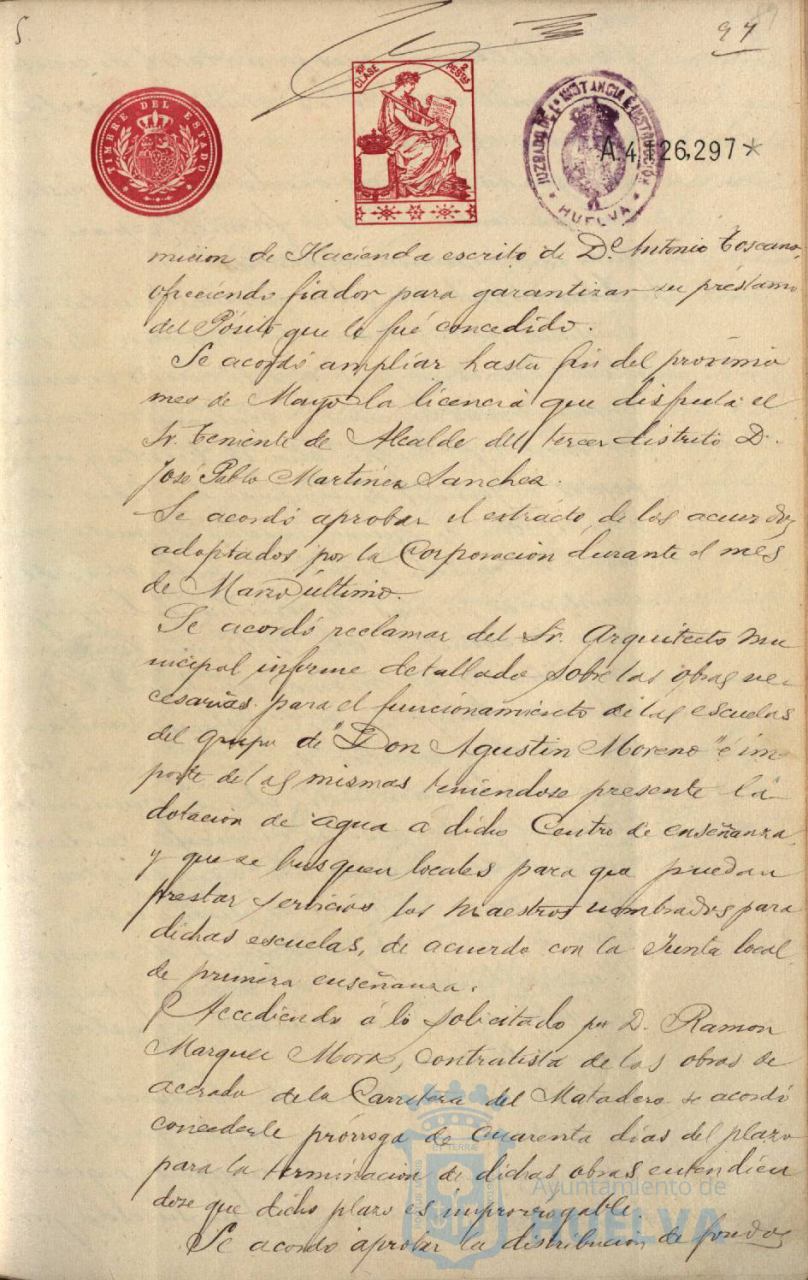 5
97
TIMBRE DEL ESTADO
10ª CLASE 2 PESTAS
JUZGADO DE 1ª INSTANCIA E INSTRUCCIÓN
HUELVA
A.4,126,297*
mision de Hacienda escrito de Dn. Antonio Toscano,
ofreciendo fiador para garantizar su préstamo
del Pósito que le fué concedido.
Se acordó ampliar hasta fin del proximo
mes de Mayo la licencia que disfruta el
Sr. Teniente de Alcalde del tercer distrito D.
José Pablo Martinez Sanchez.
Se acordó aprobar el extracto de los acuerdos
adoptados por la Corporacion durante el mes
de Marzo último.
Se acordó reclamar del Sr. Arquitecto mu
nicipal informe detallado sobre las obras ne-
cesarias para el funcionamiento de las escuelas
del grupo de "Don Agustin Moreno" é im-
porte de las mismas teniendose presente la
dotacion de agua á dicho Centro de enseñanza,
y que se busquen locales para que puedan
prestar servicios los maestros nombrados para
dichas escuelas, de acuerdo con la Junta local
de primera enseñanza.
Accediendo á lo solicitado por D. Ramon
Marquez Mora, contratista de las obras de
acerado de la Carretera del Matadero se acordó
concederle prórroga de cuarenta dias del plazo
para la terminacion de dichas obras entendien
dose que dicho plazo es improrrogable.
Se acordó aprobar la distribucion de fondos
Ayuntamiento de
HUELVA